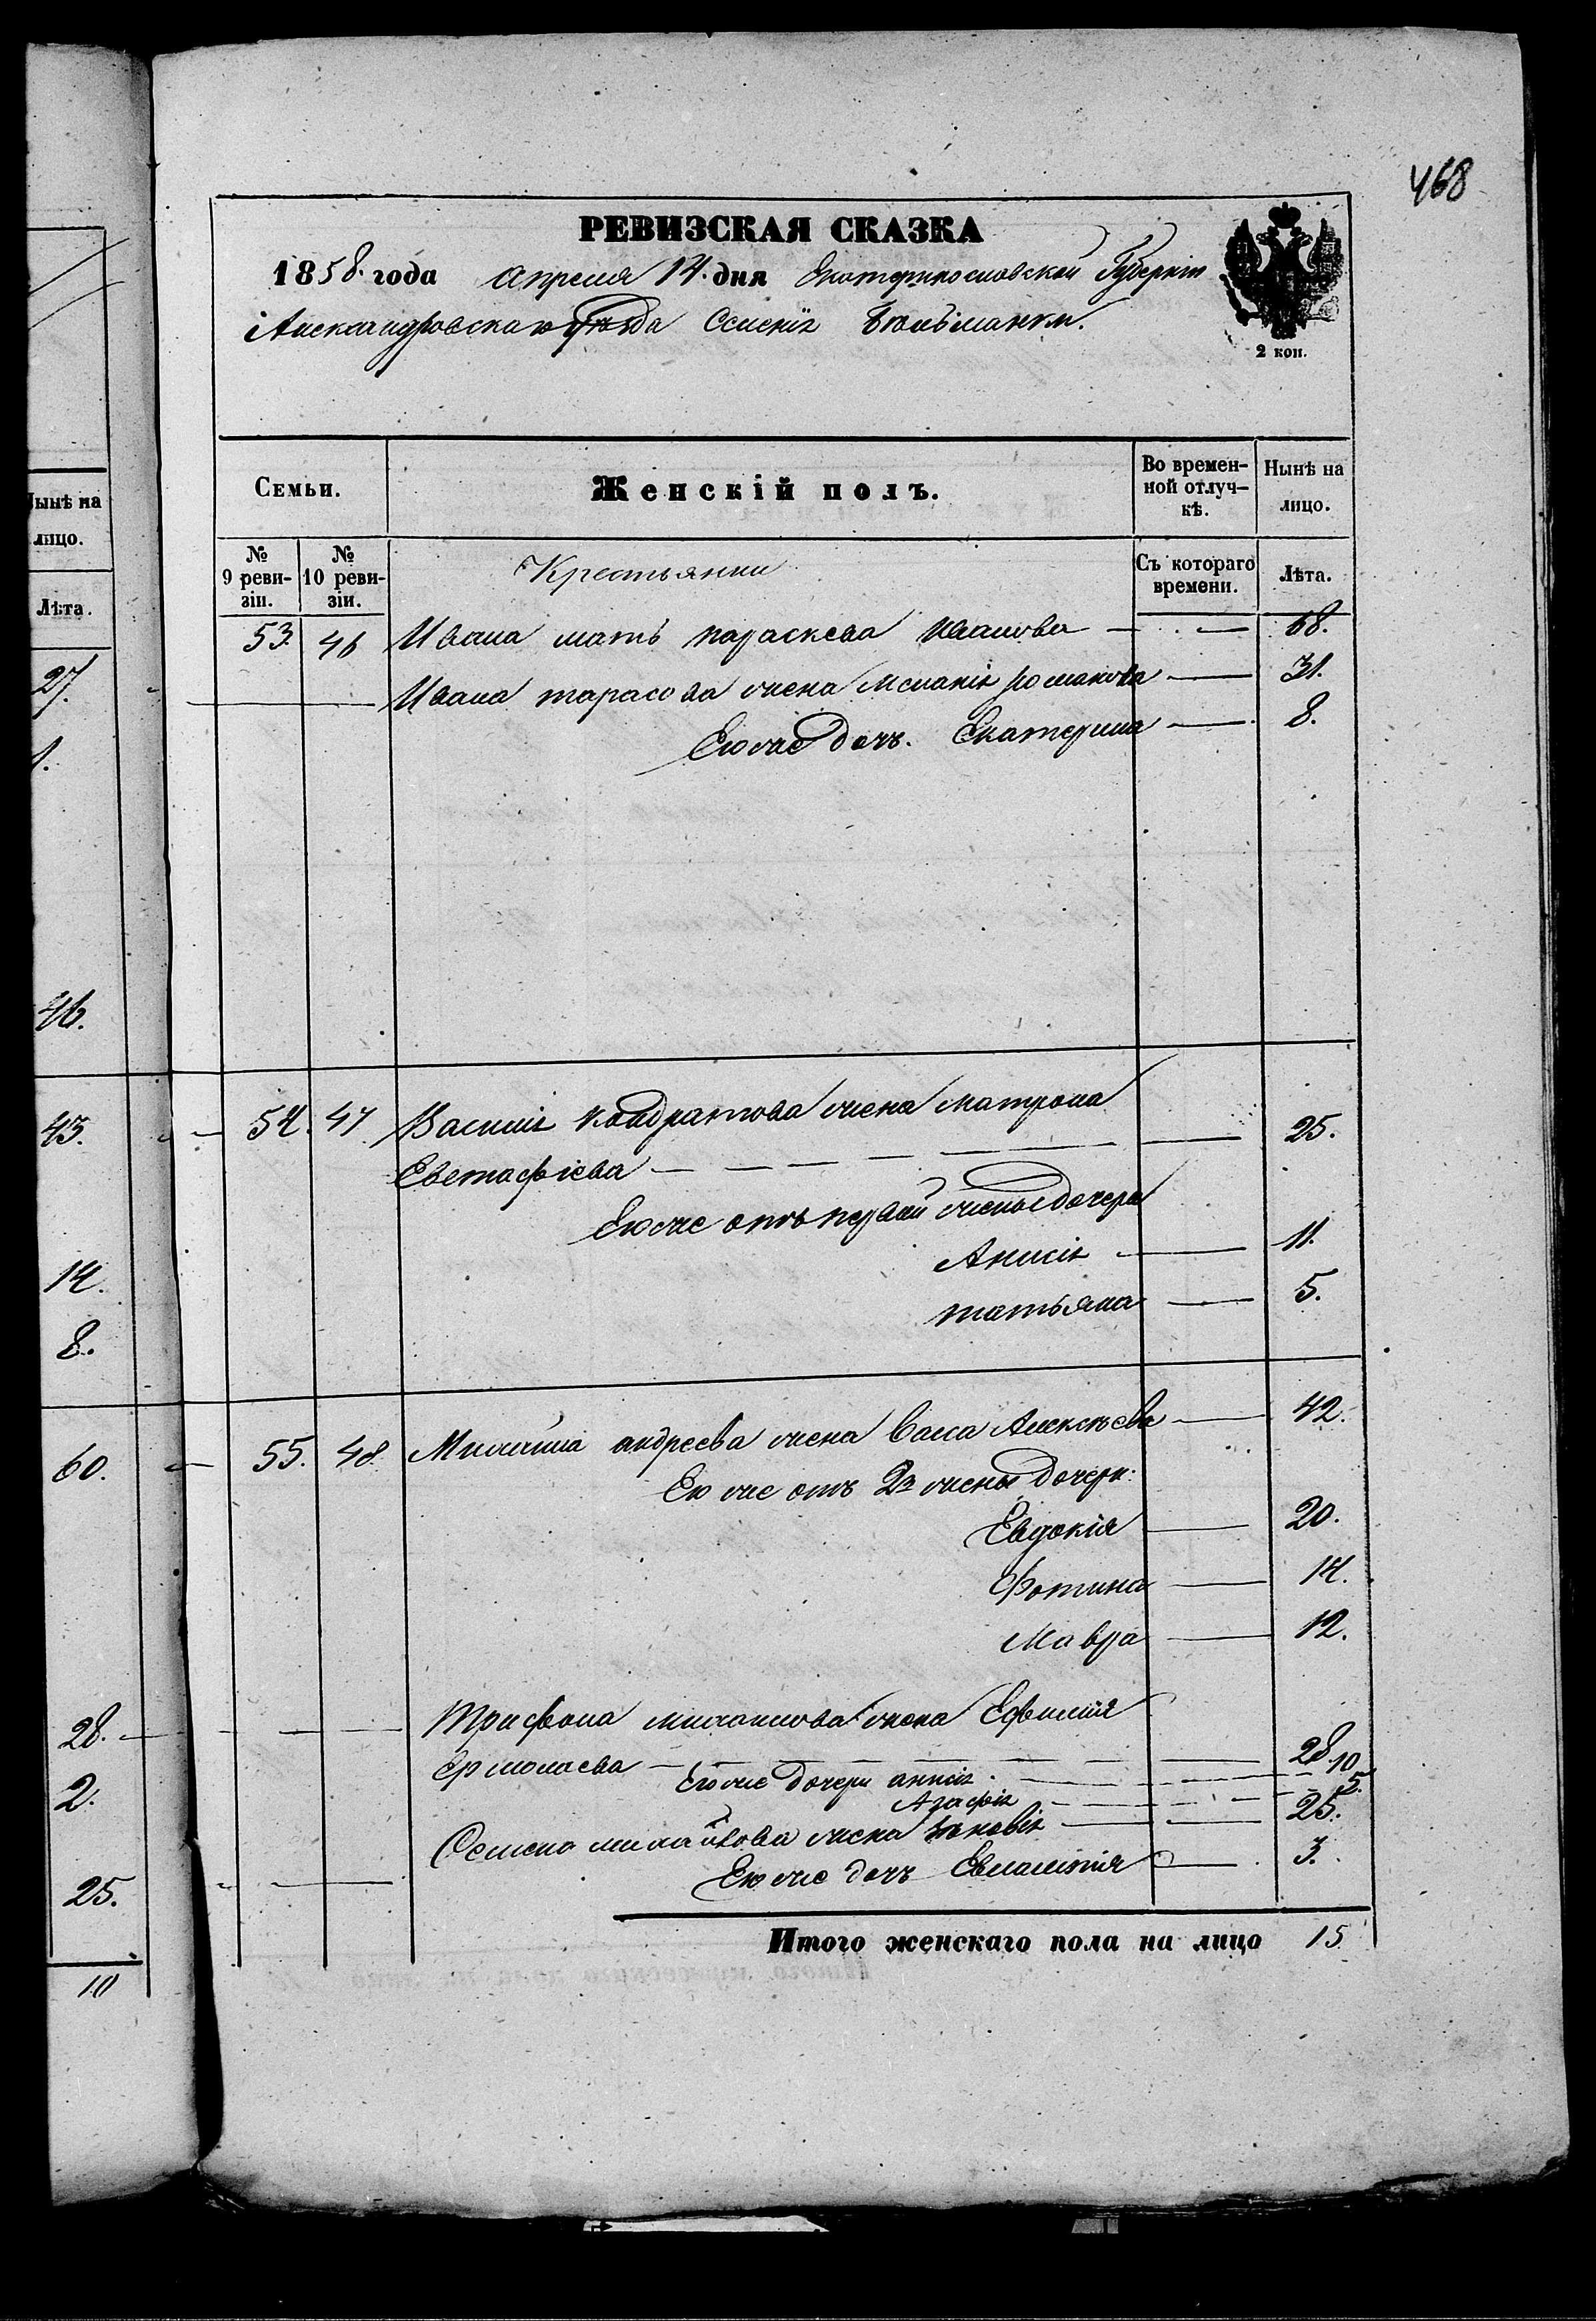 468
РЕВИЗСКАЯ СКАЗКА
1858. года апреля 14. дня Екатеринославской Губерніи
Александровскаго уѣзда Селенія
2 коп.
Семьи.
Женскій полъ.
Во времен-
ной отлуч-
кѣ.
Нынѣ на
лицо.
№
9 реви-
зіи.
№
10 реви-
зіи.
Крестьянки
Съ котораго
времени.
Лѣта.
53. 46 Ивана мать параскева Иванова — 68.
Ивана тарасова жена Меланія романова — 31.
Ево же дочь. Екатерина — 8.
54. 47 Василія Кондратова жена матрона
Евстафіева — 25.
Ево же отъ первой жены дочери
Анисія — 11.
татьяна — 5.
55. 48 Михайла андреева жена Васса Алексѣева — 42.
Ево же отъ 2й жены дочери:
Евдокія — 20.
Фотина — 14.
Мавра — 12.
Трифона михайлова жена Ефимія
Ермолаева — 28
Ево же дочери анисія — 10
Агафія — 5.
Семена михайлова жена Зиновія — 25.
Ево же дочь Евлампія — 3.
Итого женскаго пола на лицо 15
Нынѣ на
лицо.
Лѣта.
27.
1.
46.
43.
14.
8.
60.
28.
2.
25.
10